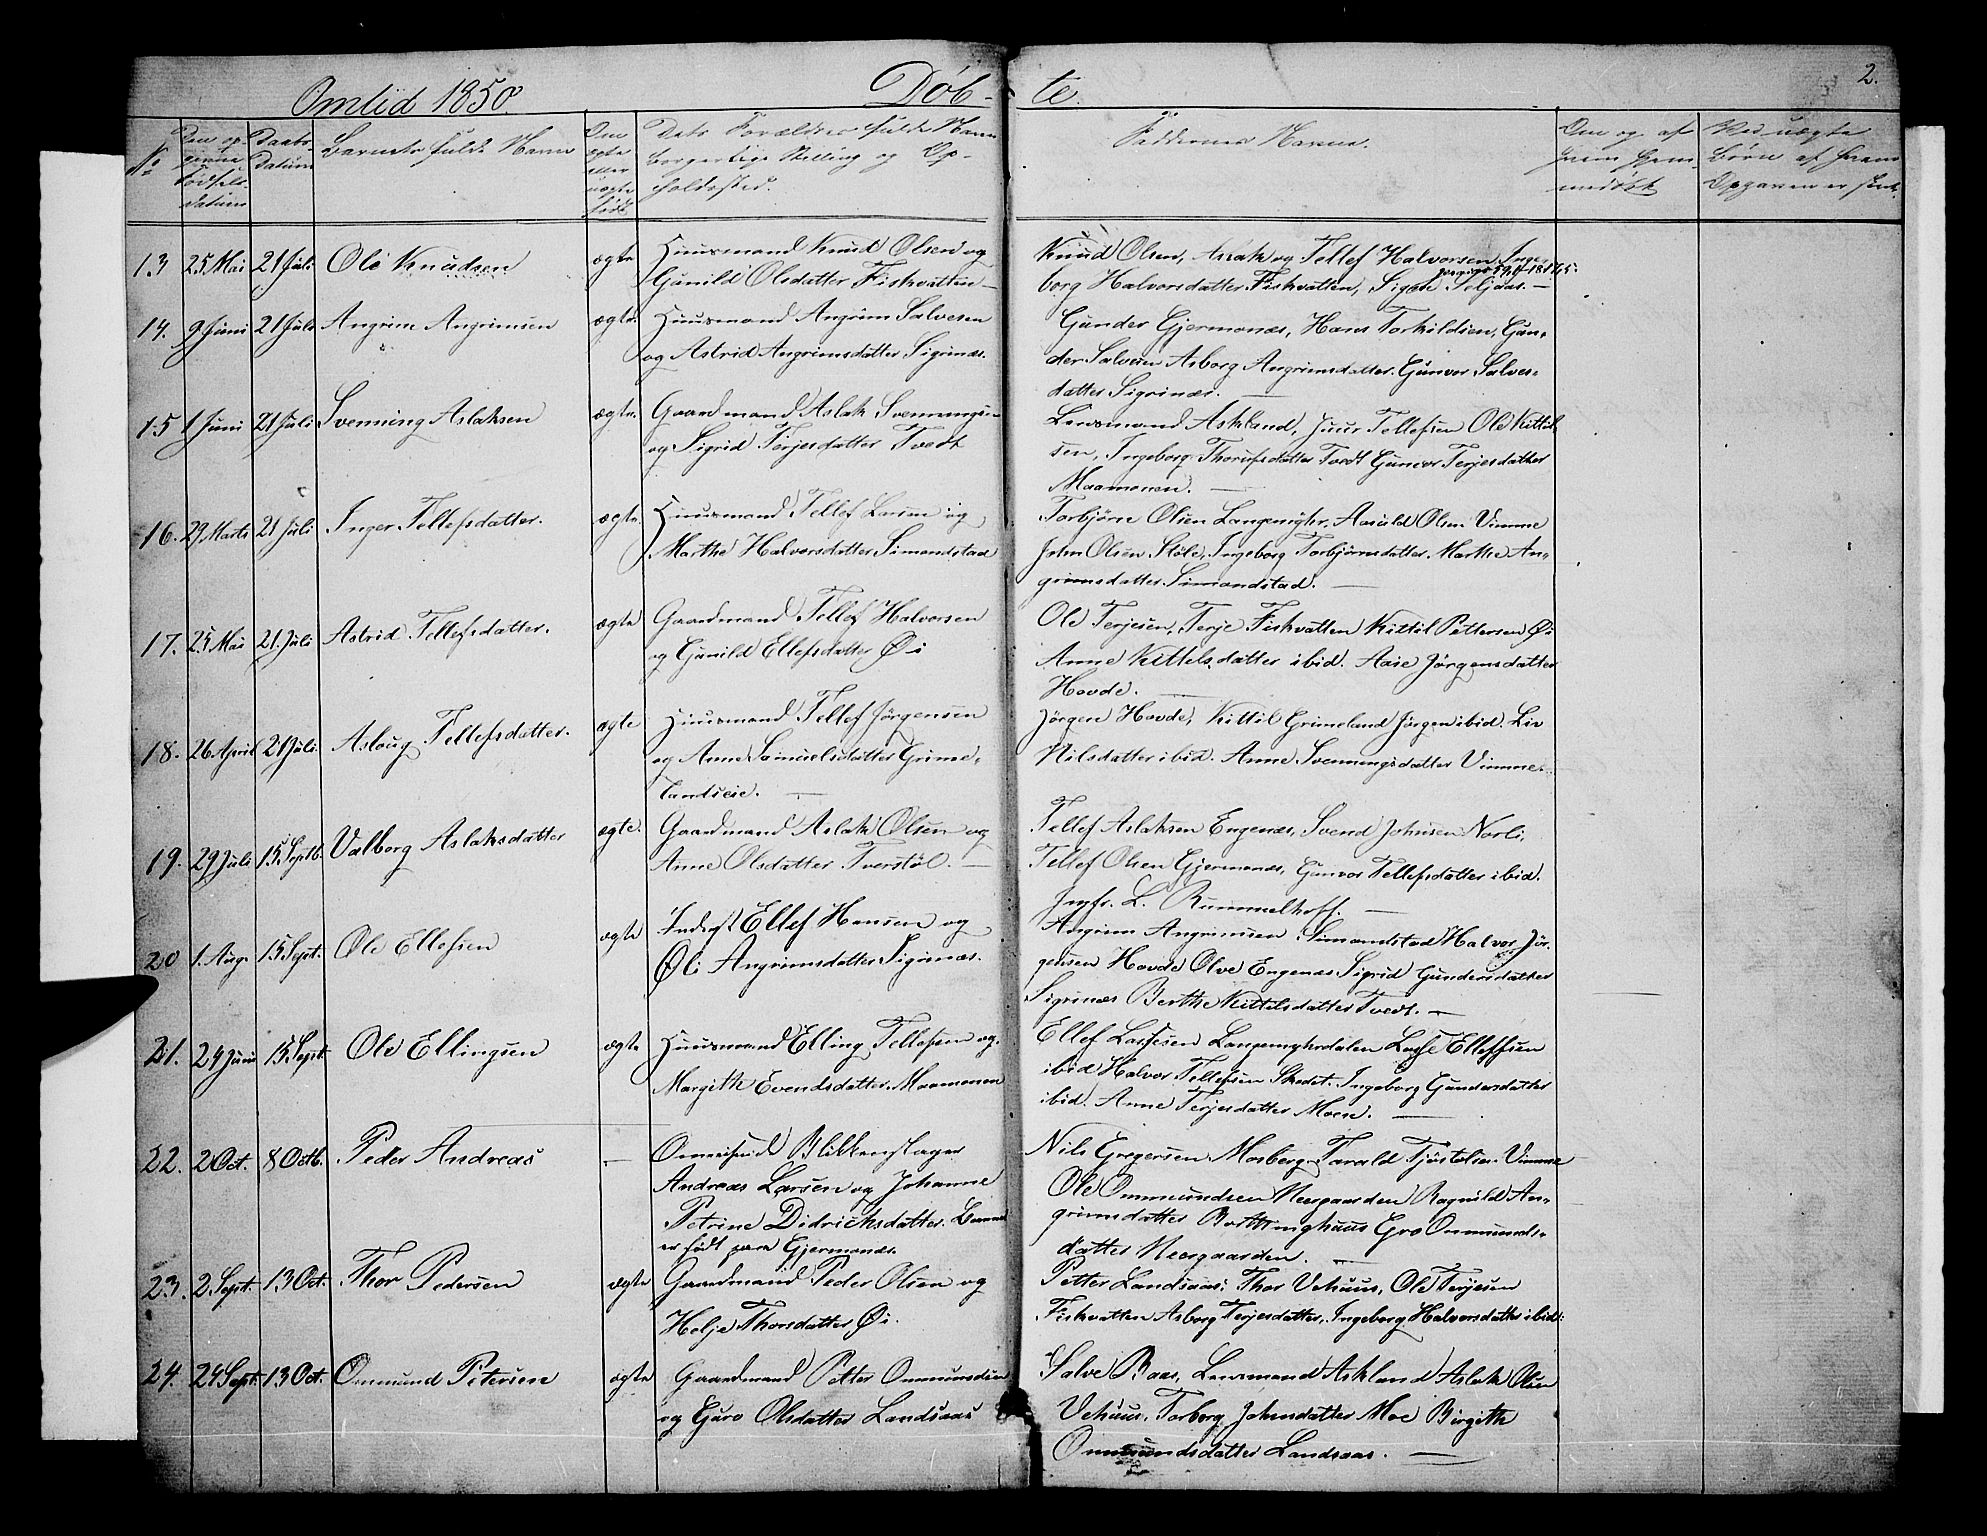 Omlid 1850. Døb- te. 2.
No Den op- givne Fødsels- datum
Daabs- datum
Barnets fulde Navn
Om ægte eller uægte født
Dets Forældres fulde Navn
borgerlige Stilling og Op-
holdssted.
Faddernes Navne.
Om og af
hvem hjem-
medøbt
Ved uægte
Børn af hvem
Opgaven er skeet.
13 25 Mai 21 Juli Ole Knudsen ægte Huusmand Knud Olsen og
Gunild Olsdatter Fiskvatten —
Knud Olsen, Aslak og Tellef Halvorsen, Inge-
borg Halvorsdatter Fiskvatten, Signe Seljaas. —
14. 9 Juni 21 Juli Angrim Angrimsen ægte. Huusmand Angrim Salvesen
og Astrid Angrimsdatter Sigrinæs.
Gunder Gjermonæs, Hans Torkildsen, Gun-
der Salvesen Asborg Angrimsdatter. Gunvor Salves-
datter Sigrinæs.
15 1 Juni 21 Juli Svenning Aslaksen ægte. Gaardmand Aslak Svenningsen
og Sigrid Terjesdatter Tvedt
Lensmand Askland, Juur Tellefsen Ole Kittil-
sen, Ingeborg Thorufsdatter Tvedt Gunvor Terjesdatter
Maamonen. —
16. 29 Marts 21 Juli Inger Tellefsdatter. ægte. Huusmand Tellef Larsen og
Marthe Halvorsdatter Simonstad
Torbjørn Olsen Langemyhr, Aasuld Olsen Vimme
John Olsen Støle, Ingeborg Torbjørnsdatter. Marthe An-
grimsdatter Simonstad. —
17. 25 Mai 21. Juli Astrid Tellefsdatter. ægte Gaardmand Tellef Halvorsen
og Gunild Ellefsdatter Øi
Ole Terjesen, Terje Fiskvatten Kittil Pettersen Øi
Anne Kittelsdatter ibid. Aase Jørgensdatter
Hovde. —
18. 26 April 21 Juli. Aslaug Tellefsdatter. ægte Huusmand Tellef Jørgensen
og Anne Samuelsdatter Grime-
landseie. —
Jørgen Hovde, Kittil Grimeland Jørgen ibid. Liv
Nilsdatter ibid. Anne Svenningsdatter Vimme.
19. 29 Juli 15. Septb. Valborg Aslaksdatter ægte. Gaardmand Aslak Olsen og
Anne Olsdatter Tverstøl. —
Tellef Aslaksen Engenæs, Svend Johnsen Norli,
Tellef Olsen Gjermonæs, Gunvor Tellefsdatter ibid.
Jmfr. L. Rummelhoff. —
20 1. Aug. 15 Sept. Ole Ellefsen ægte Inderst Ellef Hansen og
Øli Angrimsdatter Sigrinæs.
Angrim Angrimsen Simonstad Halvor Jør-
gensen Hovde Olve Engenæs Sigrid Gundersdatter
Sigrinæs Berthe Kittelsdatter Tvedt. —
21. 24 Juni 15. Sept. Ole Ellingsen ægte Huusmand Elling Tellefsen og
Margith Evendsdatter Maamonen
Ellef Lassesen Langemyhrdalen Lasse Elleffsen
ibid Halvor Tellefsen Skedet. Ingeborg Gundersdatter
ibid. Anne Terjesdatter Moen. —
22. 2 Oct. 8 Octb. Peder Andreas — Omreisend Blikkenslager
Andreas Larsen og Johanne
Petrine Didriksdatter. Barnet
er født paa Gjermonæs.
Nils Gregersen Mosberg Tarald Tjøstolsen Vimme
Ole Ommundsen Neergaarden Ragnild An-
grimsdatter Gro Ommunds-
datter Neergaarden. —
23. 2 Sept. 13 Oct. Thor Pedersen ægte Gaardmand Peder Olsen og
Helje Thorsdatter Øi.
Petter Landsaas, Thor Vehuus, Ole Terjesen
Fiskvatten Asborg Terjesdatter, Ingeborg Halvorsdatter ibid.
24. 24 Sept. 13 Oct. Ommund Petersen ægte Gaardmand Petter Ommundsen
og Guro Olsdatter Landsaas
Salve Baas, Lensmand Askland Aslak Olsen
Vehuus, Torborg Johnsdatter Moe Birgith
Ommundsdatter Landsaas. —